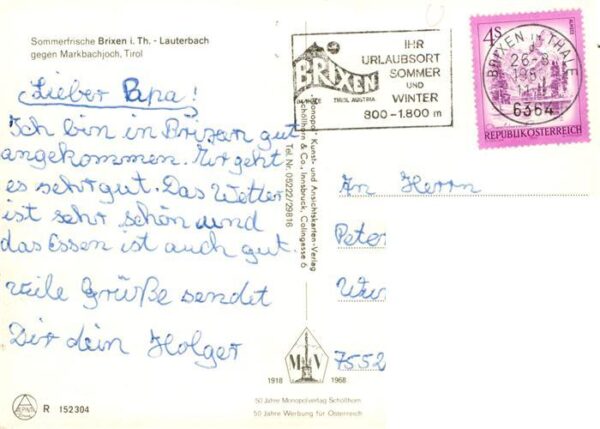 Sommerfrische Brixen i. Th. - Lauterbach
gegen Markbachjoch, Tirol
Lieber Papa!
Ich bin in Brixen gut
angekommen. Mir geht
es sehr gut. Das Wetter
ist sehr schön und
das Essen ist auch gut.
viele Grüße sendet
Dir dein Holger
IHR
URLAUBSORT
SOMMER
UND
WINTER
800-1.800 m
BRIXEN
IM THALE TIROL AUSTRIA
4S
REPUBLIK ÖSTERREICH
BRIXEN IM THALE
6364
"Monopol" Kunst- und Ansichtskarten-Verlag
Schöllhorn & Co., Innsbruck, Colingasse 6
Tel. Nr. 05222/29816
An Herrn
Peter
7552
M V
1918 1968
50 Jahre Monopolverlag Schöllhorn
50 Jahre Werbung für Österreich
R 152304